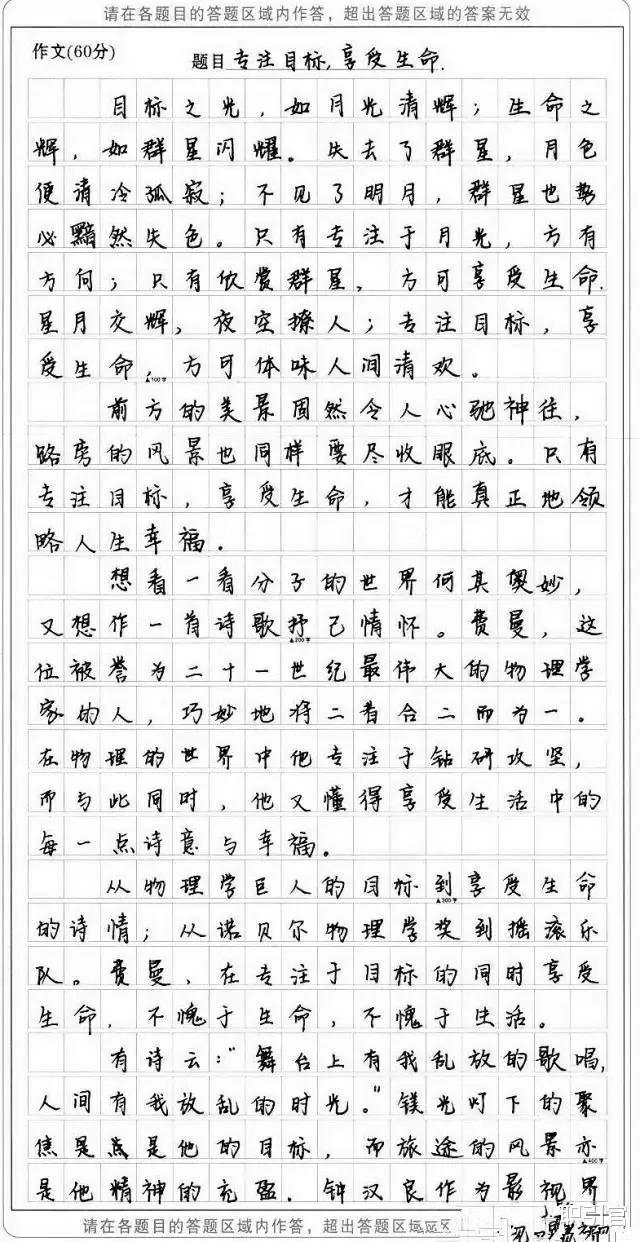 请在各题目的答题区域内作答，超出答题区域的答案无效
作文(60分)
题目 专注目标,享受生命.
目标之光，如月光清辉；生命之
辉，如群星闪耀。失去了群星，月色
便清冷孤寂；不见了明月，群星也势
必黯然失色。只有专注于月光，方有
方向；只有欣赏群星，方可享受生命.
星月交辉，夜空撩人；专注目标，享
受生命，方可体味人间清欢。
▲100字
前方的美景固然令人心驰神往，
路旁的风景也同样要尽收眼底。只有
专注目标，享受生命，才能真正地领
略人生幸福。
想看一看分子的世界何其奥妙，
又想作一首诗歌抒己情怀。费曼，这
▲200字
位被誉为二十一世纪最伟大的物理学
家的人，巧妙地将二者合二而为一。
在物理的世界中他专注于钻研攻坚，
而与此同时，他又懂得享受生活中的
每一点诗意与幸福。
从物理学巨人的目标到享受生命
▲300字
的诗情；从诺贝尔物理学奖到摇滚乐
队。费曼，在专注于目标的同时享受
生命，不愧于生命，不愧于生活。
有诗云："舞台上有我乱放的歌唱,
人间有我放乱的时光。"镁光灯下的聚
焦是点是他的目标，而旅途的风景亦
▲400字
是他精神的充盈。钟汉良作为影视界
请在各题目的答题区域内作答，超出答题区域的答案无效